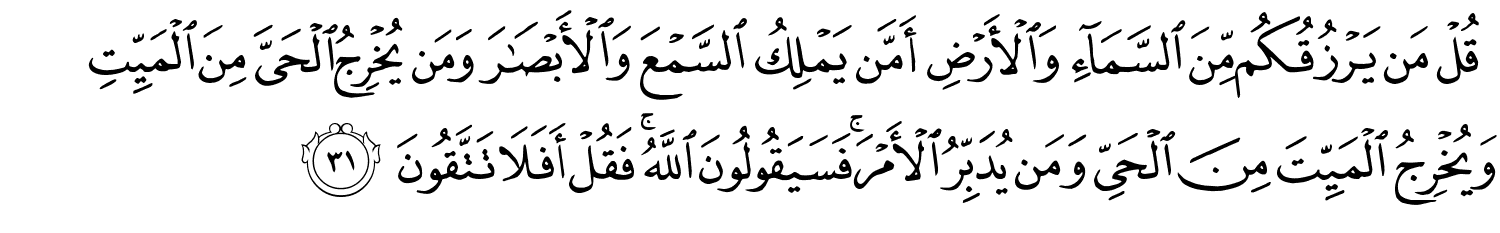 قُلۡ مَن يَرۡزُقُكُم مِّنَ ٱلسَّمَآءِ وَٱلۡأَرۡضِ أَمَّن يَمۡلِكُ ٱلسَّمۡعَ وَٱلۡأَبۡصَٰرَ وَمَن يُخۡرِجُ ٱلۡحَيَّ مِنَ ٱلۡمَيِّتِ
وَيُخۡرِجُ ٱلۡمَيِّتَ مِنَ ٱلۡحَيِّ وَمَن يُدَبِّرُ ٱلۡأَمۡرَۚ فَسَيَقُولُونَ ٱللَّهُۚ فَقُلۡ أَفَلَا تَتَّقُونَ ٣١